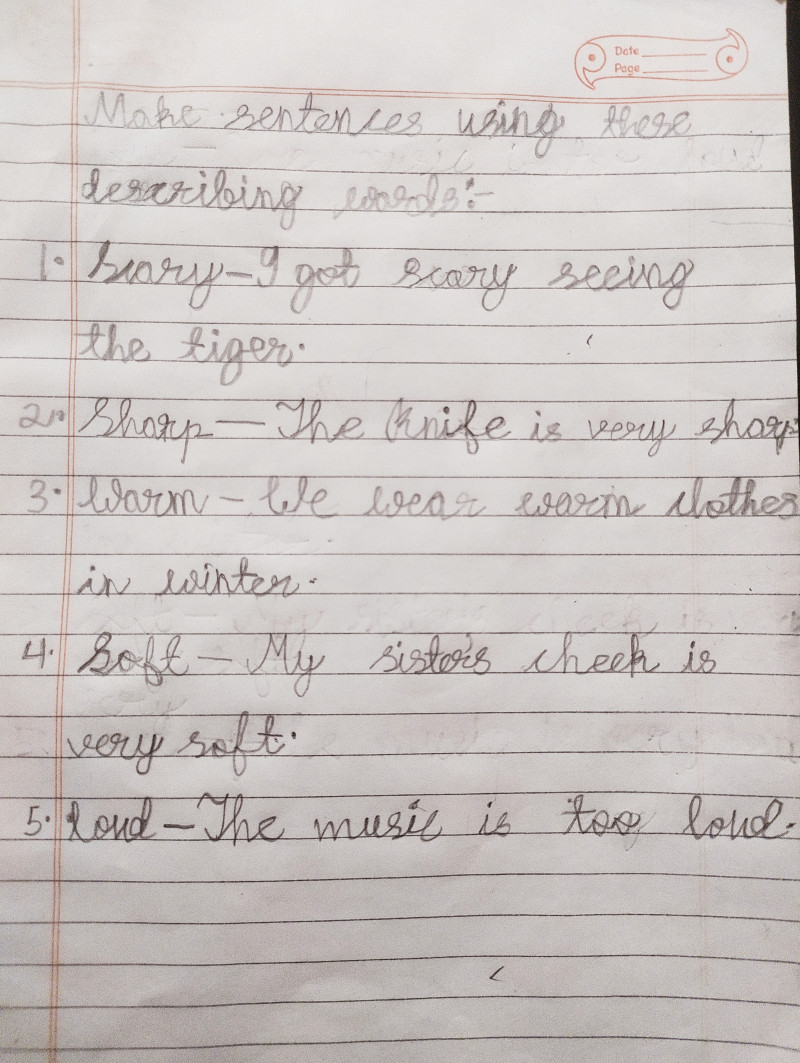 Date
Page
Make sentences using these
describing words:-
1. Scary - I got scary seeing
the tiger.
2. Sharp - The Knife is very sharp
3. Warm - We wear warm clothes
in winter.
4. Soft - My sister's cheek is
very soft.
5. loud - The music is too loud.